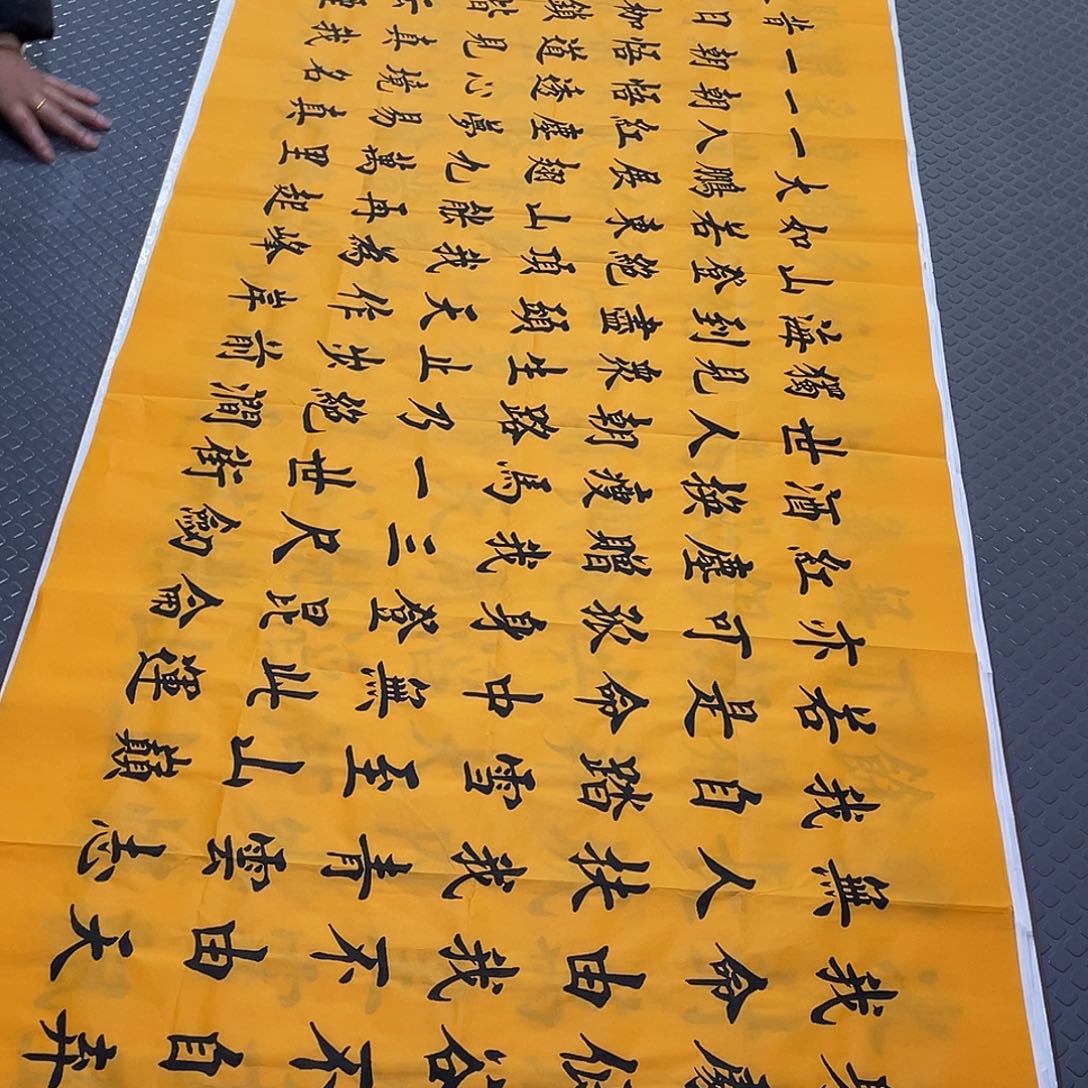 昔日枷鎖皆
一朝悟道見真我
一朝悟透心境名
一入紅塵夢易真
大鵬展翅九萬里
如若東山能再起
山登絕頂我為峰
海到盡頭天作岸
獨見衆生止步前
世人朝路乃絕澗
酒換瘦馬一世街
紅塵贈我三尺劍
亦可孤身登昆侖
若是命中無此運
我自踏雪至山巔
無人扶我青雲志
我命由我不由天
谷不自弃